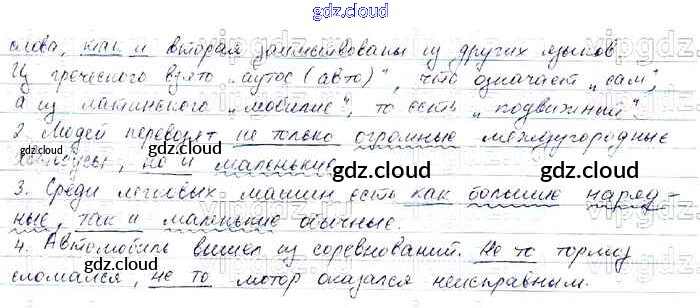 gdz.cloud
слова, как и вторая заимствованы из других языков
Из греческого взято „аутос (авто)", что означает „сам",
а из латинского „мобилис", то есть „подвижный".
2. Людей перевозят не только огромные междугородные
автобусы, но и маленькие
3. Среди легковых машин есть как большие наряд-
ные, так и маленькие обычные.
4. Автомобиль вышел из соревнований. Не то тормоз
сломался, не то мотор оказался неисправным.